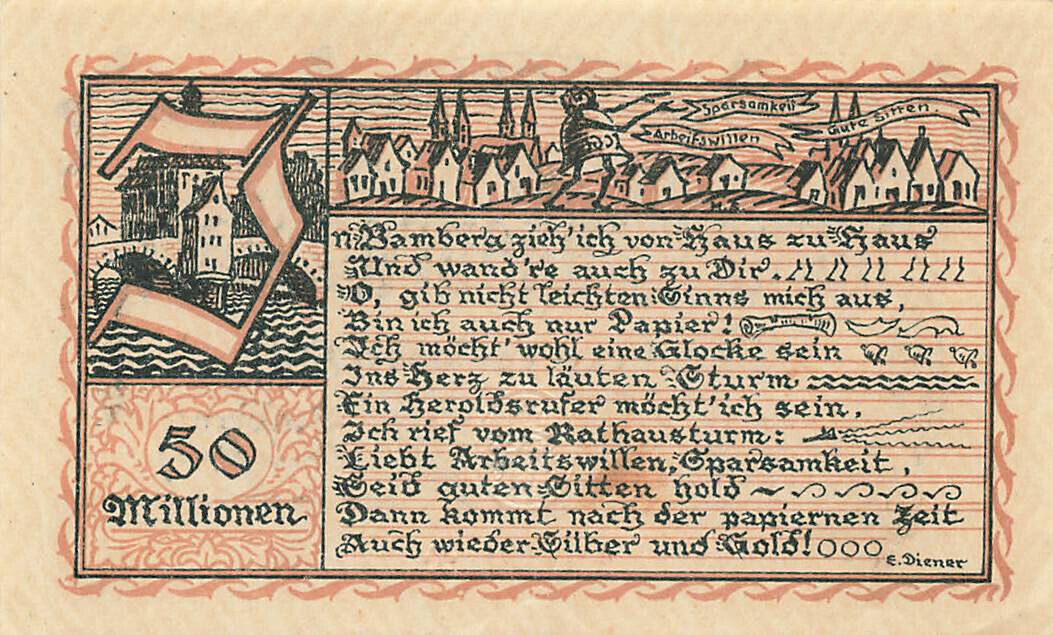 Sparsamkeit
Gute Sitten.
Arbeitswillen
In Bamberg zieh' ich von Haus zu Haus
Und wand're auch zu Dir.
O, gib nicht leichten Sinns mich aus,
Bin ich auch nur Papier!
Ich möcht' wohl eine Glocke sein
Ins Herz zu läuten Sturm
Ein Heroldsrufer möcht' ich sein,
Ich rief vom Rathausturm:
Liebt Arbeitswillen, Sparsamkeit,
Seid guten Sitten hold
Dann kommt nach der papiernen Zeit
Auch wieder Silber und Gold!
E. Diener
50
Millionen